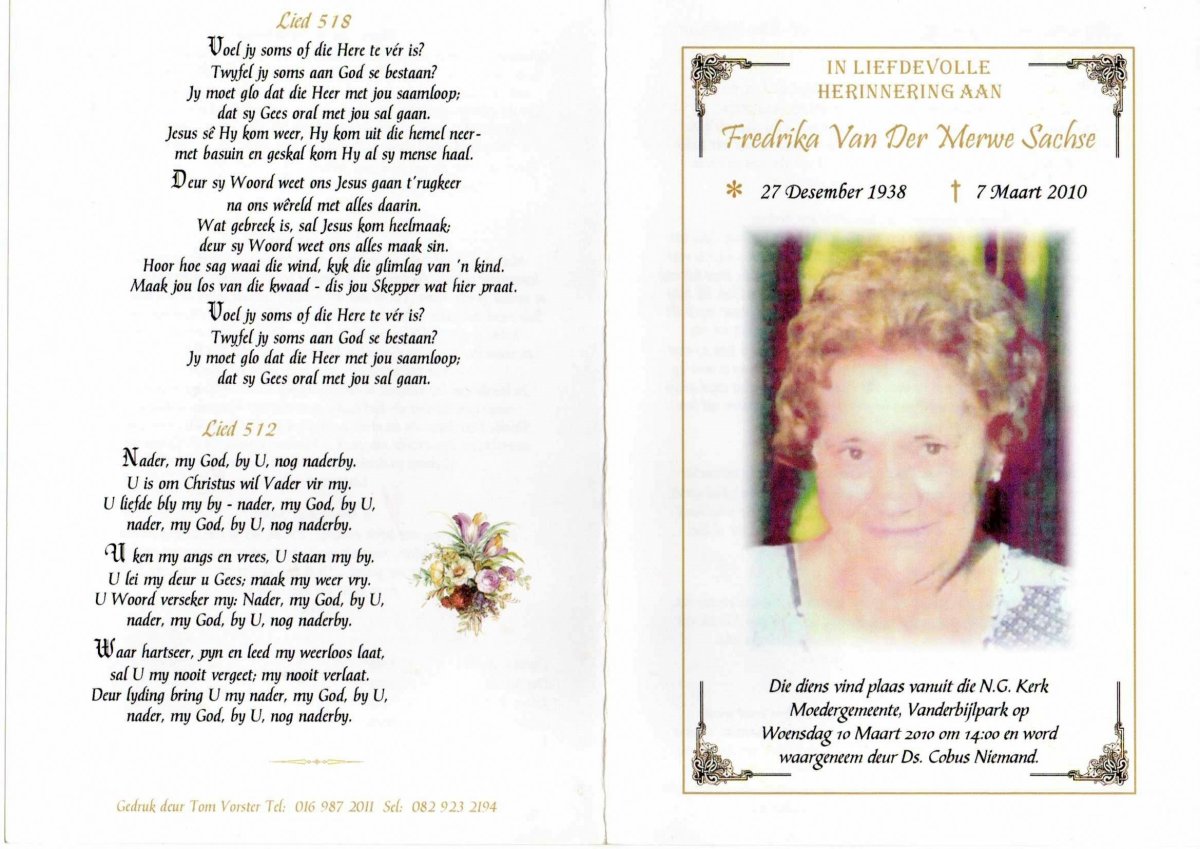 Lied 518
Voel jy soms of die Here te vér is?
Twyfel jy soms aan God se bestaan?
Jy moet glo dat die Heer met jou saamloop;
dat sy Gees oral met jou sal gaan.
Jesus sê Hy kom weer, Hy kom uit die hemel neer-
met basuin en geskal kom Hy al sy mense haal.
Deur sy Woord weet ons Jesus gaan t'rugkeer
na ons wêreld met alles daarin.
Wat gebreek is, sal Jesus kom heelmaak;
deur sy Woord weet ons alles maak sin.
Hoor hoe sag waai die wind, kyk die glimlag van 'n kind.
Maak jou los van die kwaad - dis jou Skepper wat hier praat.
Voel jy soms of die Here te vér is?
Twyfel jy soms aan God se bestaan?
Jy moet glo dat die Heer met jou saamloop;
dat sy Gees oral met jou sal gaan.
Lied 512
Nader, my God, by U, nog naderby.
U is om Christus wil Vader vir my.
U liefde bly my by - nader, my God, by U,
nader, my God, by U, nog naderby.
U ken my angs en vrees, U staan my by.
U lei my deur u Gees; maak my weer vry.
U Woord verseker my: Nader, my God, by U,
nader, my God, by U, nog naderby.
Waar hartseer, pyn en leed my weerloos laat,
sal U my nooit vergeet; my nooit verlaat.
Deur lyding bring U my nader, my God, by U,
nader, my God, by U, nog naderby.
Gedruk deur Tom Vorster Tel: 016 987 2011 Sel: 082 923 2194
IN LIEFDEVOLLE
HERINNERING AAN
Fredrika Van Der Merwe Sachse
* 27 Desember 1938 † 7 Maart 2010
Die diens vind plaas vanuit die N.G. Kerk
Moedergemeente, Vanderbijlpark op
Woensdag 10 Maart 2010 om 14:00 en word
waargeneem deur Ds. Cobus Niemand.